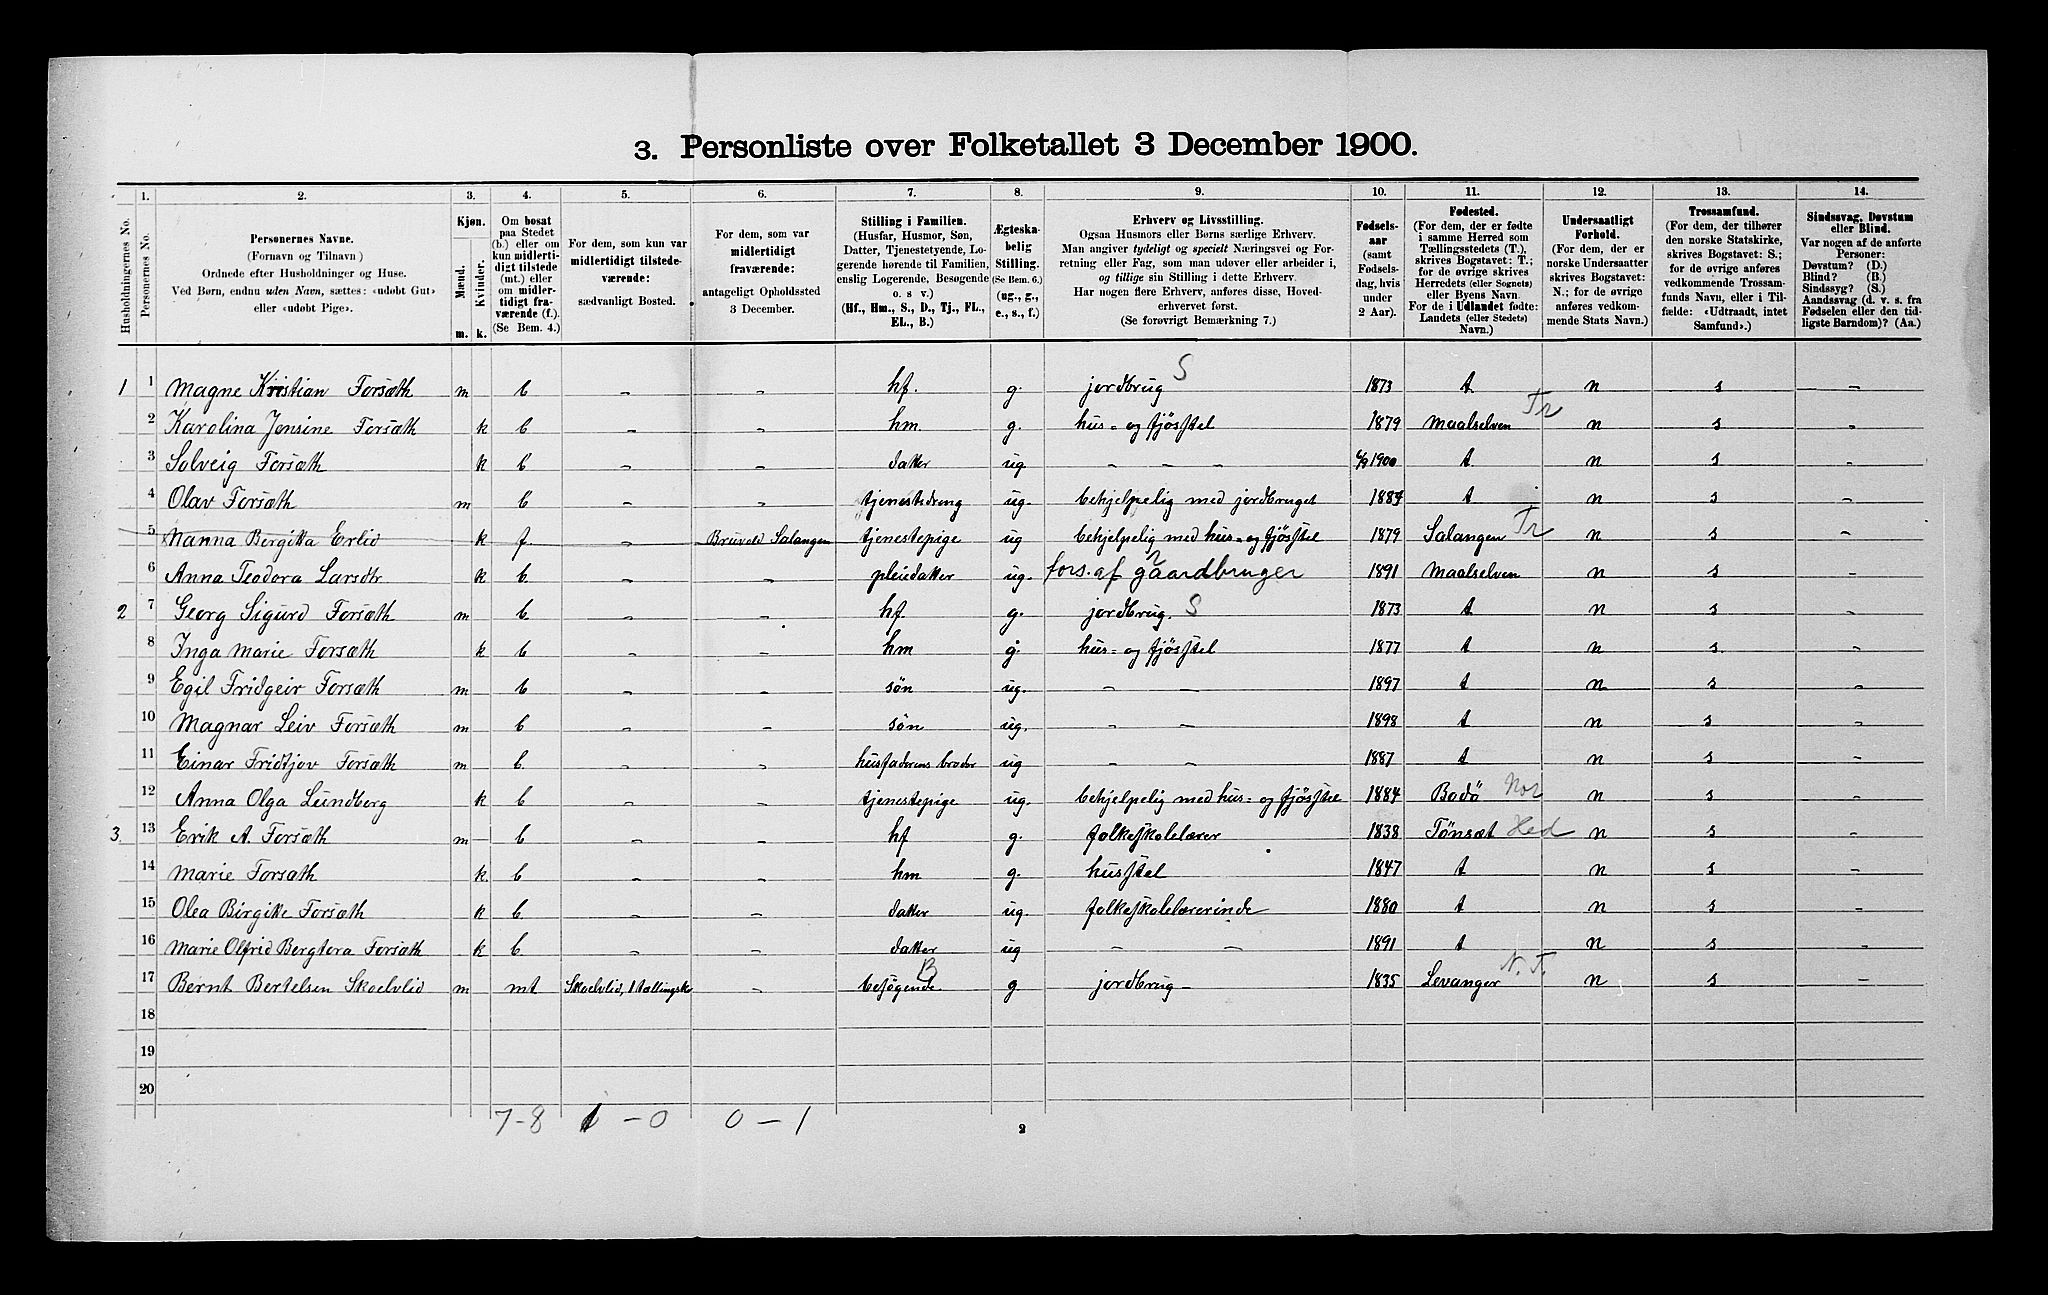 3. Personliste over Folketallet 3 December 1900.
1. 2. 3. 4. 5. 6. 7. 8. 9. 10. 11. 12. 13. 14.
Husholdningernes No.
Personernes No.
Personernes Navne.
(Fornavn og Tilnavn)
Ordnede efter Husholdninger og Huse.
Ved Børn, endnu uden Navn, sættes: «udøbt Gut»
eller «udøbt Pige».
Kjøn.
Mænd. Kvinder.
m. k.
Om bosat
paa Stedet
(b.) eller om
kun midlerti-
digt tilstede
(mt.) eller
om midler-
tidigt fra-
værende (f.).
(Se Bem. 4.)
For dem, som kun var
midlertidigt tilstede-
værende:
sædvanligt Bosted.
For dem, som var
midlertidigt
fraværende:
antageligt Opholdssted
3 December.
Stilling i Familien.
(Husfar, Husmor, Søn,
Datter, Tjenestetyende, Lo-
gerende hørende til Familien,
enslig Logerende, Besøgende
o. s v.)
(Hf., Hm., S., D., Tj., FL.,
EL., B.)
Ægteska-
belig
Stilling.
(Se Bem. 6.)
(ug., g.,
e., s., f.)
Erhverv og Livsstilling.
Ogsaa Husmors eller Børns særlige Erhverv.
Man angiver tydeligt og specielt Næringsvei og For-
retning eller Fag, som man udøver eller arbeider i,
og tillige sin Stilling i dette Erhverv.
Har nogen flere Erhverv, anføres disse, Hoved-
erhvervet først.
(Se forøvrigt Bemærkning 7.)
Fødsels-
aar
(samt
Fødsels-
dag, hvis
under
2 Aar).
Fødested.
(For dem, der er fødte
i samme Herred som
Tællingsstedets (T.),
skrives Bogstavet: T.;
for de øvrige skrives
Herredets (eller Sognets)
eller Byens Navn.
For de i Udlandet fødte:
Landets (eller Stedets)
Navn.)
Undersaatligt
Forhold.
(For dem, der er
norske Undersaatter
skrives Bogstavet:
N.; for de øvrige
anføres vedkom-
mende Stats Navn.)
Trossamfund.
(For dem, der tilhører
den norske Statskirke,
skrives Bogstavet: S.;
for de øvrige anføres
vedkommende Trossam-
funds Navn, eller i Til-
fælde: «Udtraadt, intet
Samfund».)
Sindssvag, Døvstum
eller Blind.
Var nogen af de anførte
Personer:
Døvstum? (D.)
Blind? (B.)
Sindssyg? (S.)
Aandssvag (d. v. s. fra
Fødselen eller den tid-
ligste Barndom)? (Aa.)
1 1 Magne Kristian Forsæth m b - - hf. g. jordbrug S 1873 t n s -
2 Karolina Jensine Forsæth k b - - hm. g. hus- og fjøsstel 1879 Maalselven Tr n s -
3 Solveig Forsæth k b - - datter ug. - - - 6/9 1900 t n s -
4 Olav Forsæth m b - - tjenestedreng ug. behjelpelig med jordbruget 1884 t n s -
5 Nanna Bergitta Erlid k f. - Bruvold Salangen tjenestepige ug behjelpelig med hus- og fjøsstel 1879 Salangen Tr n s -
6 Anna Teodora Larsdtr k b. - - pleiedatter ug. fors. af gaardbruger 1891 Maalselven n s -
2 7 Georg Sigurd Forsæth m b. - - hf. g. jordbrug. S 1873 t n s -
8 Inga Marie Forsæth k b - - hm g. hus- og fjøsstel 1877 t n s. -
9 Egil Fridgeir Forsæth m b - - søn ug. - - 1897 t n s -
10 Magnar Leiv Forsæth m b - - søn ug. - - 1898 t n s -
11 Einar Fridtjov Forsæth m b. - - husfaderens broder ug - - 1887 t n s -
12 Anna Olga Lundberg k b - - tjenestepige ug. behjelpelig med hus- og fjøsstel 1884 Bodö Nor n s -
3. 13 Erik A. Forsæth m b - - hf g. folkeskolelærer 1838 Tönsæt Hed n s -
14 Marie Forsæth k. b - - hm g. husstel 1847 t n s -
15 Olea Birgitte Forsæth k b - - datter ug. folkeskolelærerinde 1880 t n s -
16 Marie Olfrid Bergtora Forsæth k b. - - datter ug - - 1891 t n s -
17 Bernt Bertelsen Skoelvlid m mt Skoelvlid, 1 tællingskr - besøgende. B g jordbrug - 1835 Levanger N. T. n s -
18
19
20
7-8 1-0 0-1
2